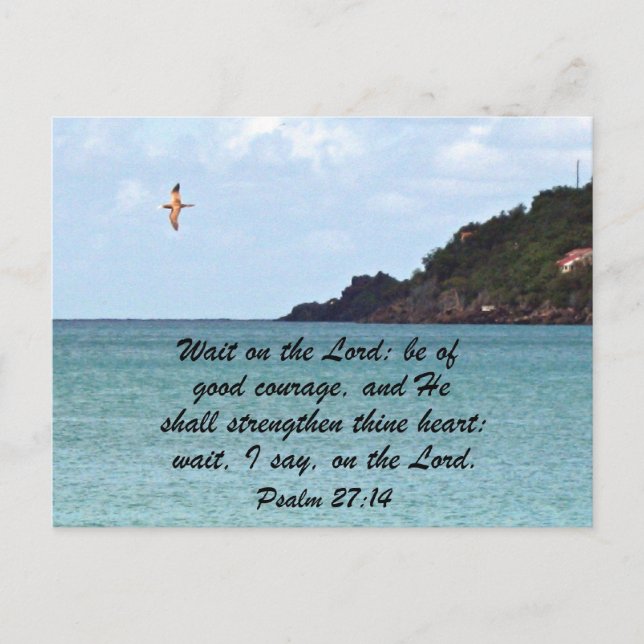 Wait on the Lord: be of
good courage, and He
shall strengthen thine heart:
wait, I say, on the Lord.
Psalm 27:14